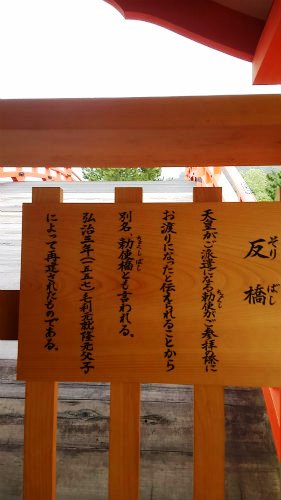 反橋
そり ばし
天皇がご派遣になる勅使がご参拝際に
ちょくし
お渡りになったと伝えられることから
別名、勅使橋とも言われる。
ちょくしばし
弘治三年(一五五七)毛利元就隆元父子
によって再造されたものである。